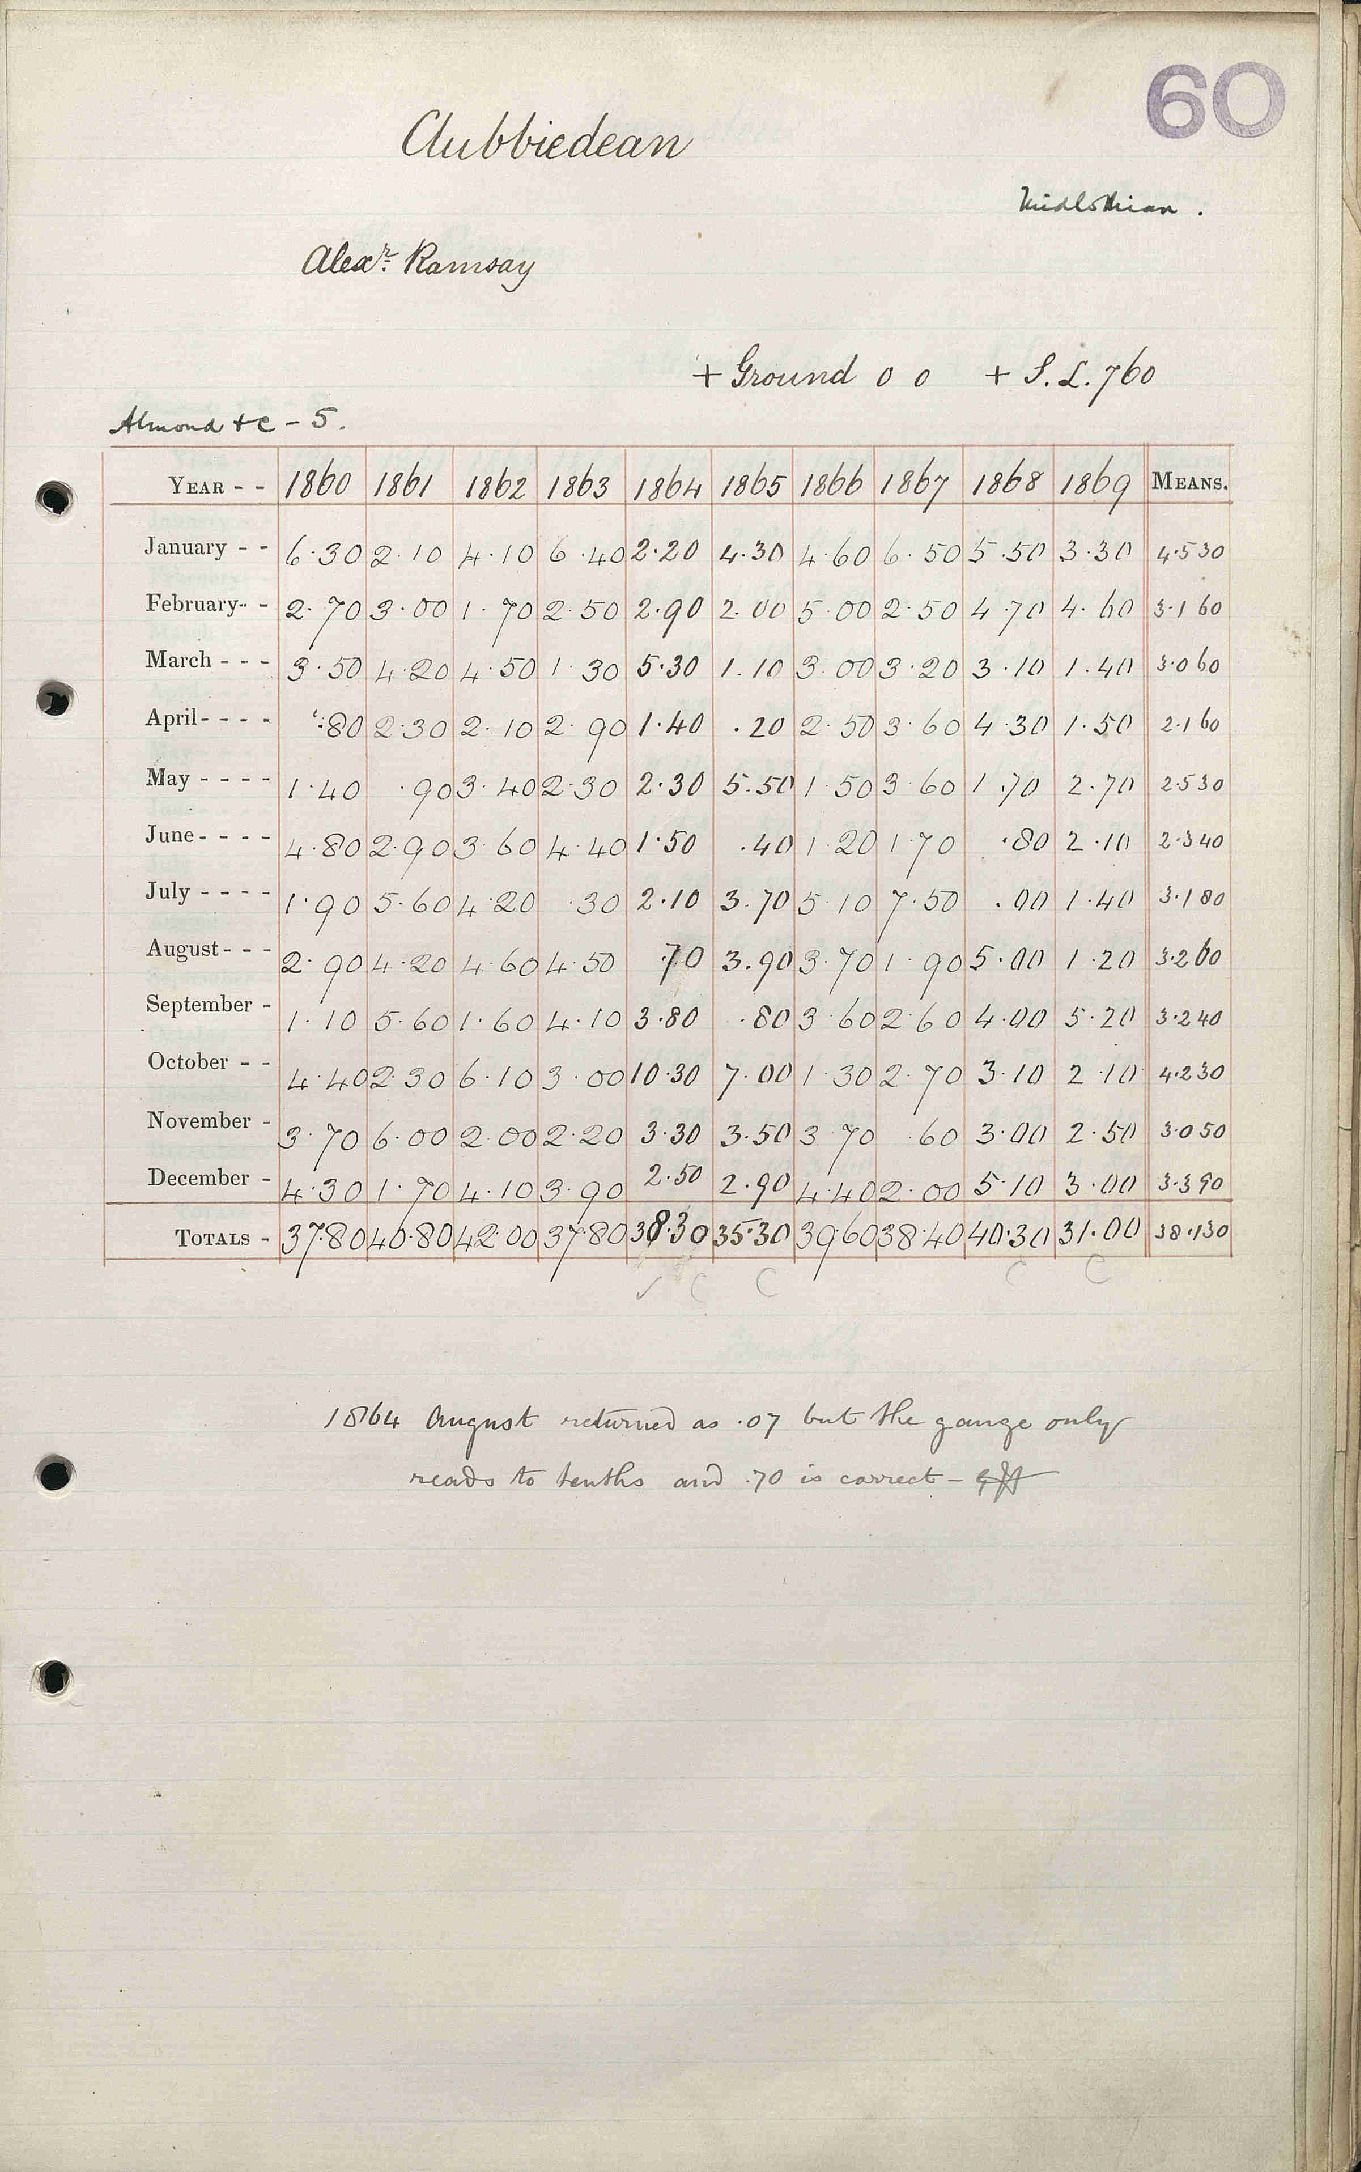 60
Clubbiedean
Midlothian.
Alexr. Ramsay
+ Ground 0 0 + S.L. 760
Almond &c - 5.
YEAR - - 1860 1861 1862 1863 1864 1865 1866 1867 1868 1869 MEANS.
January - - 6.30 2.10 4.10 6.40 2.20 4.30 4.60 6.50 5.50 3.30 4.530
February - - 2.70 3.00 1.70 2.50 2.90 2.00 5.00 2.50 4.70 4.60 3.160
March - - - 3.50 4.20 4.50 1.30 5.30 1.10 3.00 3.20 3.10 1.40 3.060
April - - - - .80 2.30 2.10 2.90 1.40 .20 2.50 3.60 4.30 1.50 2.160
May - - - - 1.40 .90 3.40 2.30 2.30 5.50 1.50 3.60 1.70 2.70 2.530
June - - - - 4.80 2.90 3.60 4.40 1.50 .40 1.20 1.70 .80 2.10 2.340
July - - - - 1.90 5.60 4.20 .30 2.10 3.70 5.10 7.50 .00 1.40 3.180
August - - - 2.90 4.20 4.60 4.50 .70 3.90 3.70 1.90 5.00 1.20 3.260
September - 1.10 5.60 1.60 4.10 3.80 .80 3.60 2.60 4.00 5.20 3.240
October - - 4.40 2.30 6.10 3.00 10.30 7.00 1.30 2.70 3.10 2.10 4.230
November - 3.70 6.00 2.00 2.20 3.30 3.50 3.70 .60 3.00 2.50 3.050
December - 4.30 1.70 4.10 3.90 2.50 2.90 4.40 2.00 5.10 3.00 3.390
TOTALS - 37.80 40.80 42.00 37.80 38.30 35.30 39.60 38.40 40.30 31.00 38.130
✓ C C C C
1864 August returned as .07 but the gauge only
reads to tenths and .70 is correct -